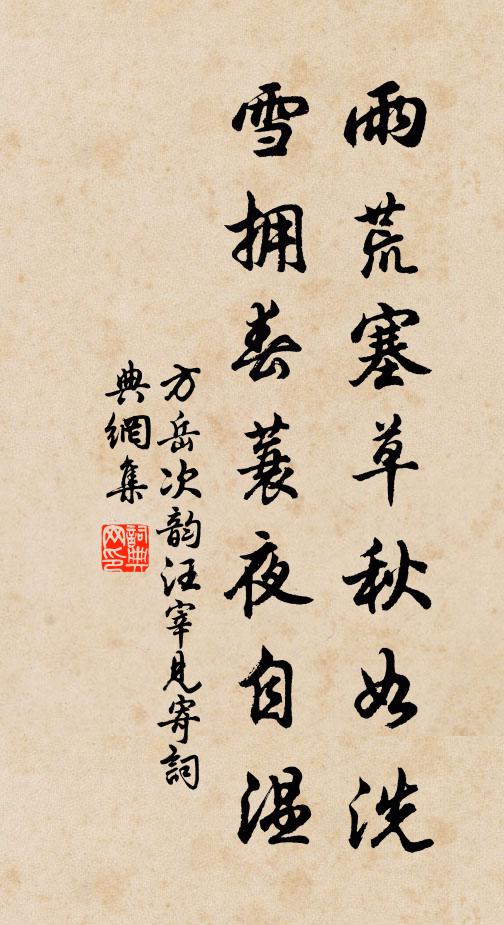 雨荒塞草秋如洗
雪拥春蓑夜自温
方岳次韵汪宰见寄词
典網集
詞典网印